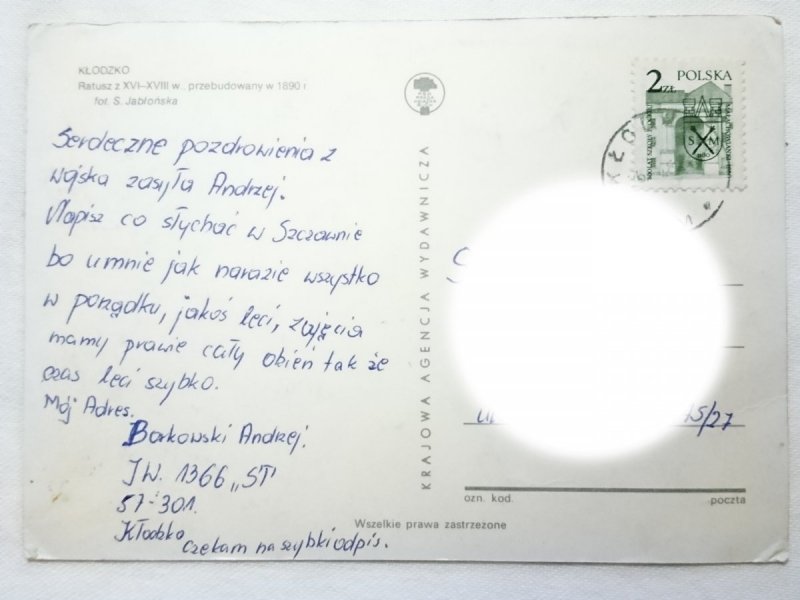 KŁODZKO
Ratusz z XVI–XVIII w., przebudowany w 1890 r.
fot. S. Jabłońska
Serdeczne pozdrowienia z
wojska zasyła Andrzej.
Napisz co słychać w Szczawnie
bo umnie jak narazie wszystko
w porządku, jakoś leci, zajęcia
mamy prawie cały dzień tak że
czas leci szybko.
Mój Adres.
Borkowski Andrzej.
JW. 1366 „ST"
57-301.
Kłodzko
czekam na szybki odpis.
KRAJOWA AGENCJA WYDAWNICZA
Wszelkie prawa zastrzeżone
2 ZŁ POLSKA
S M
KŁO
ul
15/27
ozn. kod.
poczta